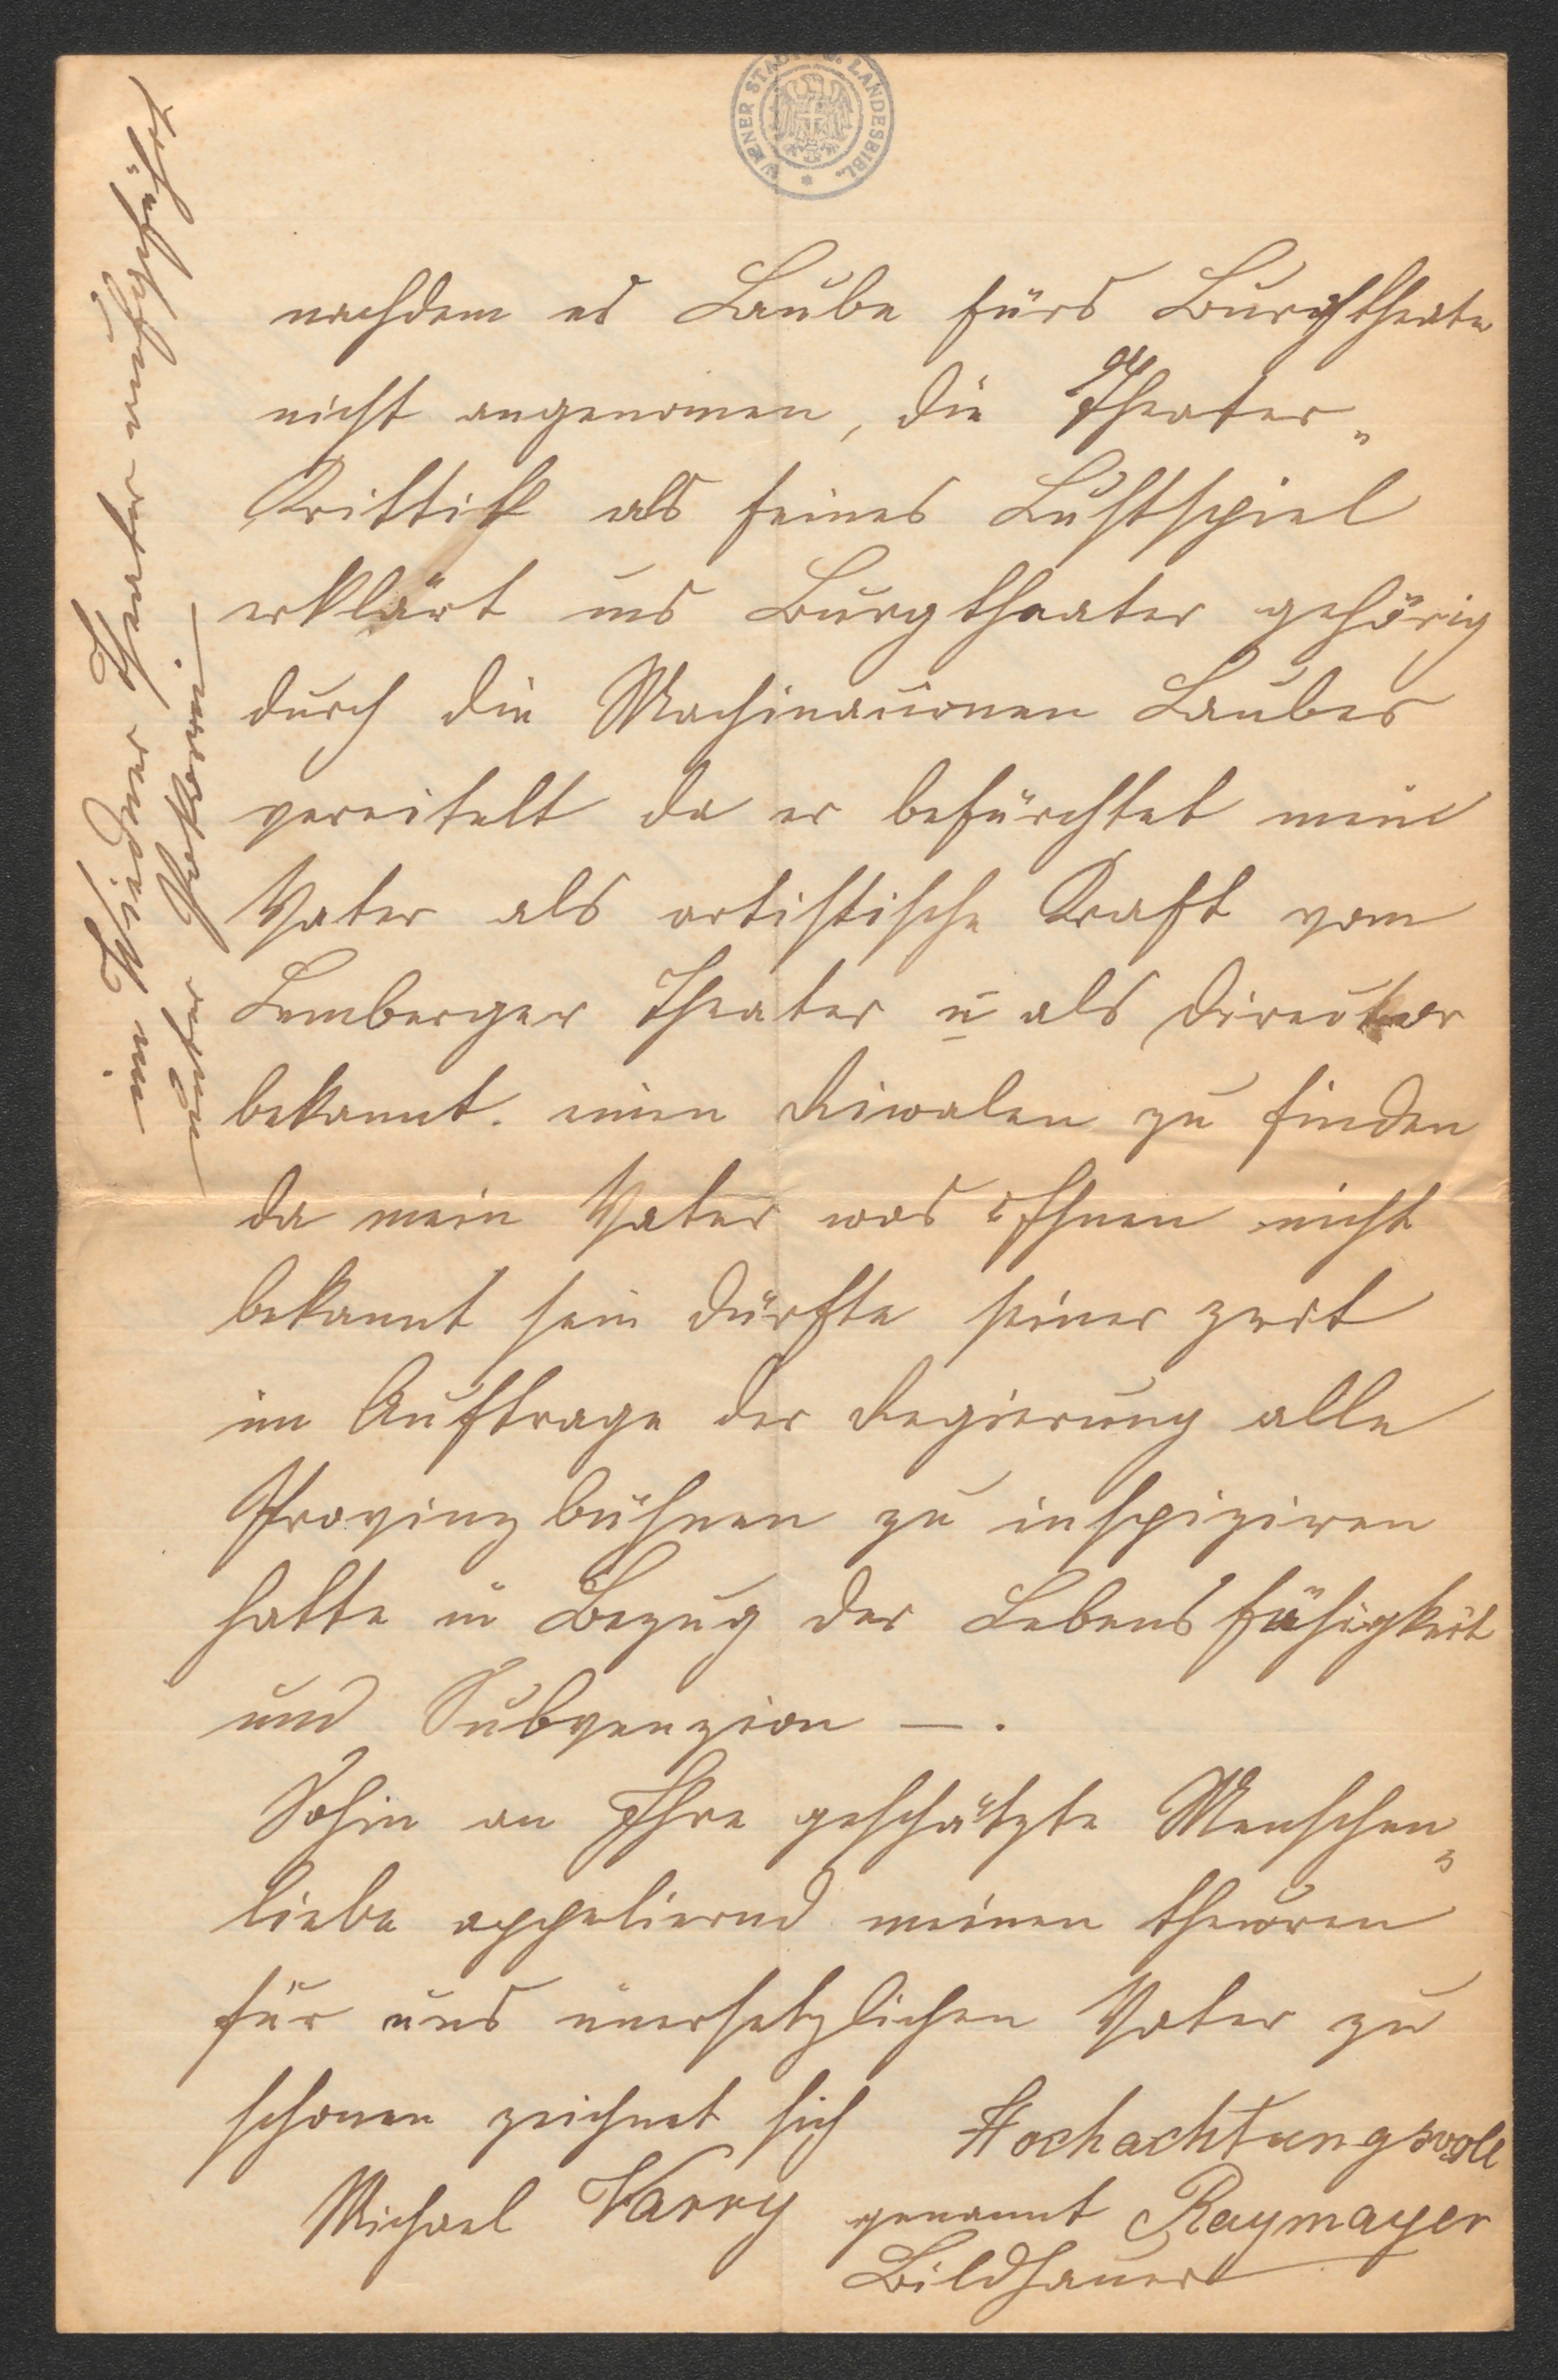 WIENER STADT- U. LANDESBIBL.
nachdem es Laube fürs Burgtheate
nicht angenomen, die Theater„
Krittik als feines Lustspiel
erklärt ins Burgtheater gehörig
durch die Machinacionen Laubes
vereitelt da er befürchtet mein
Vater als artistische Kraft vom
Lemberger Theater u als Director
bekannt. einen Riwalen zu finden
da mein Vater was Ihnen nicht
bekannt sein dürfte seiner zeit
im Auftrage der Regierung alle
Provinzbühnen zu inspiziren
hatte in Bezug der Lebensfähigkeit
und Subvenzion —.
Sohin an Ihre geschätzte Menschen„
liebe appelirend meinen theuren
für uns unersetzlichen Vater zu
schonen zeichnet sich Hochachtungsvoll
Michael Varry genannt Raymayer
Bildhauer